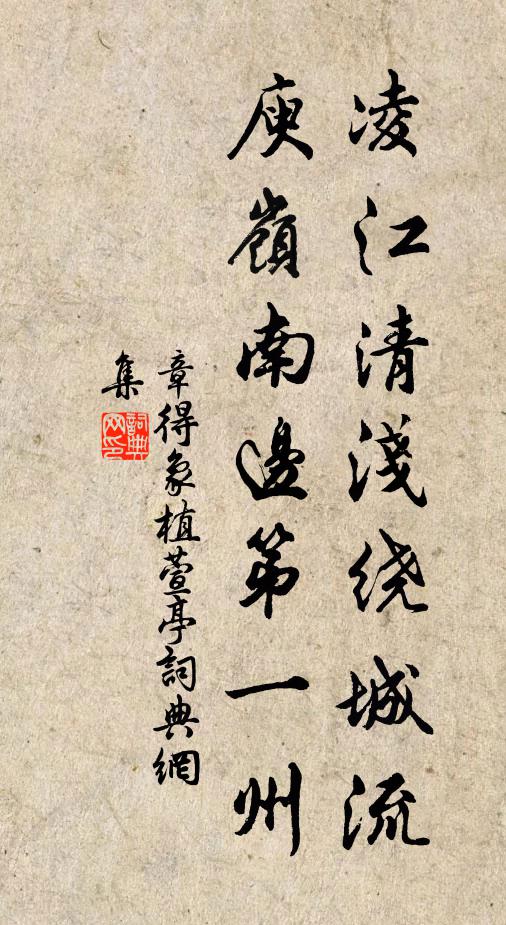 凌江清淺绕城流
庾嶺南邊第一州
章得象植萱亭詞典網
集
詞典网印